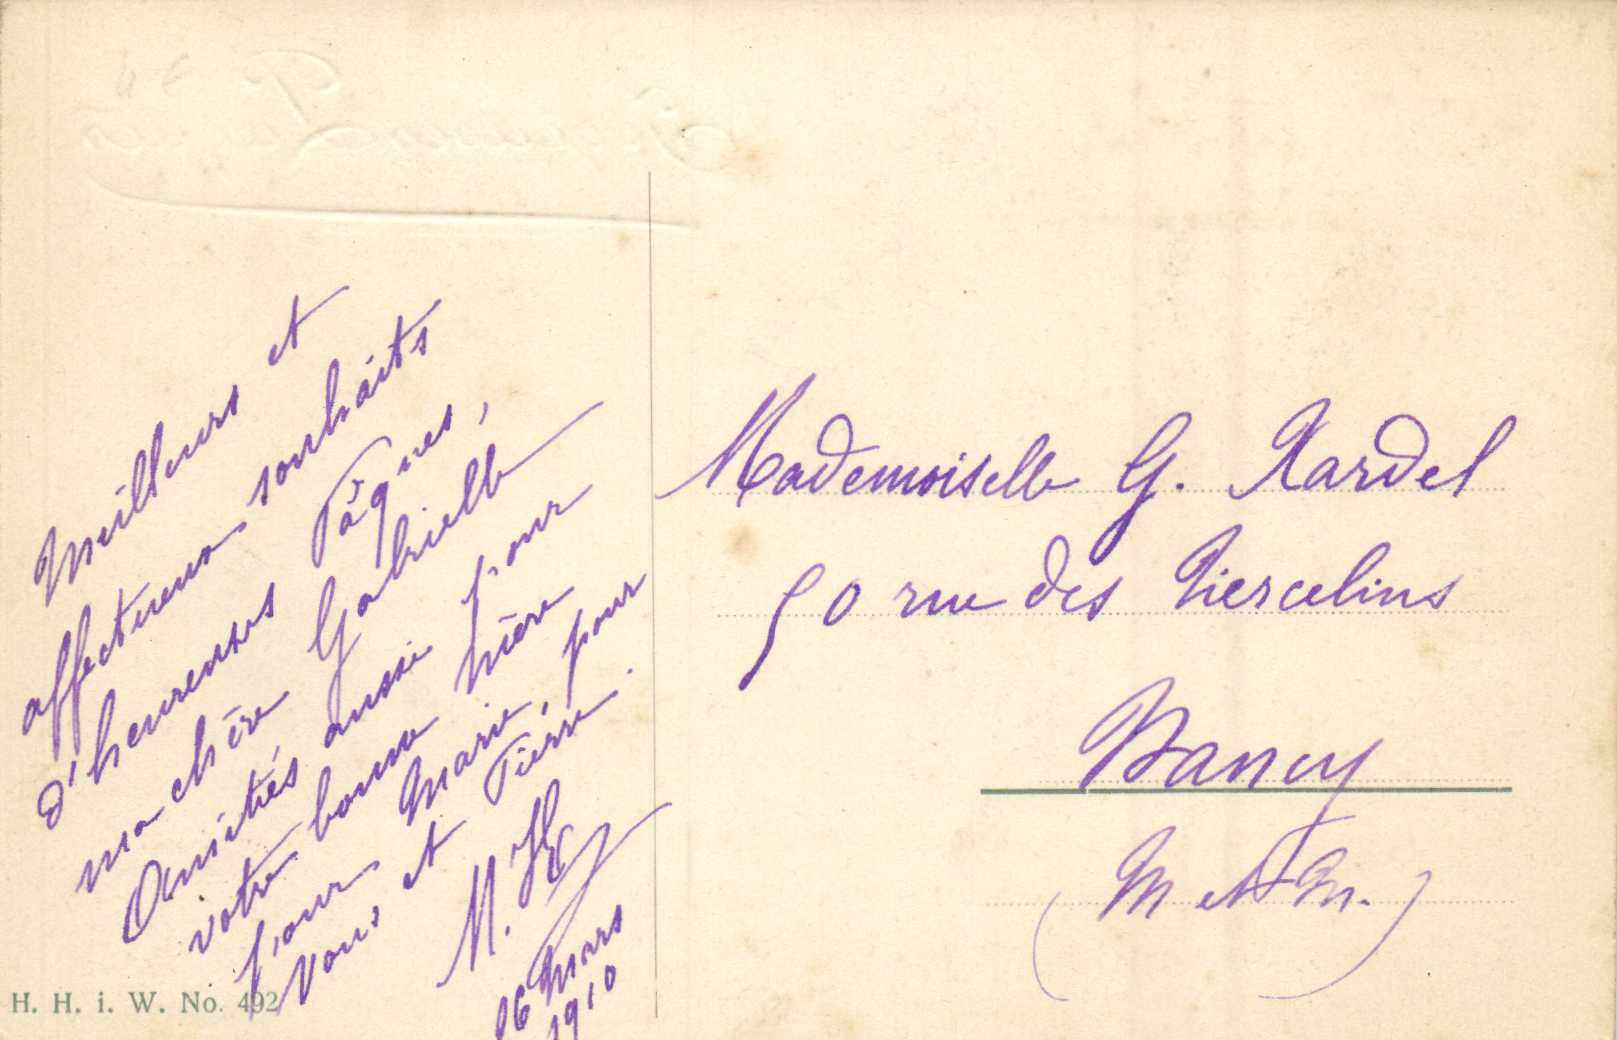 Meilleurs et
affectueux souhaits
d'heureuses Pâques,
ma chère Gabrielle
Amitiés aussi pour
votre bonne Mère
pour Marie, pour
vous, et Pierre.
M. H
26 Mars
1910
Mademoiselle G. Xardel
50 rue des Tiercelins
Nancy
(M et M.)
H. H. i. W. No. 492